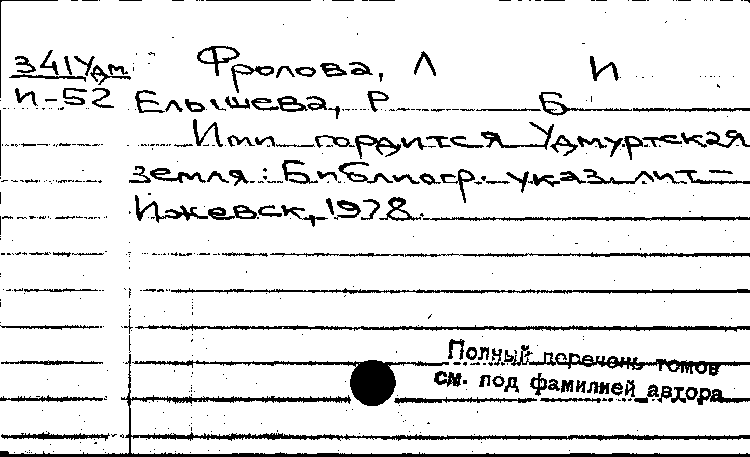 З41Удм Фролова, Л И
И-52 Елышева, Р Б
Ими гордится Удмуртская
земля: Библиогр. указ. лит-
Ижевск, 1978.
Полный перечень томов
см. под фамилией автора